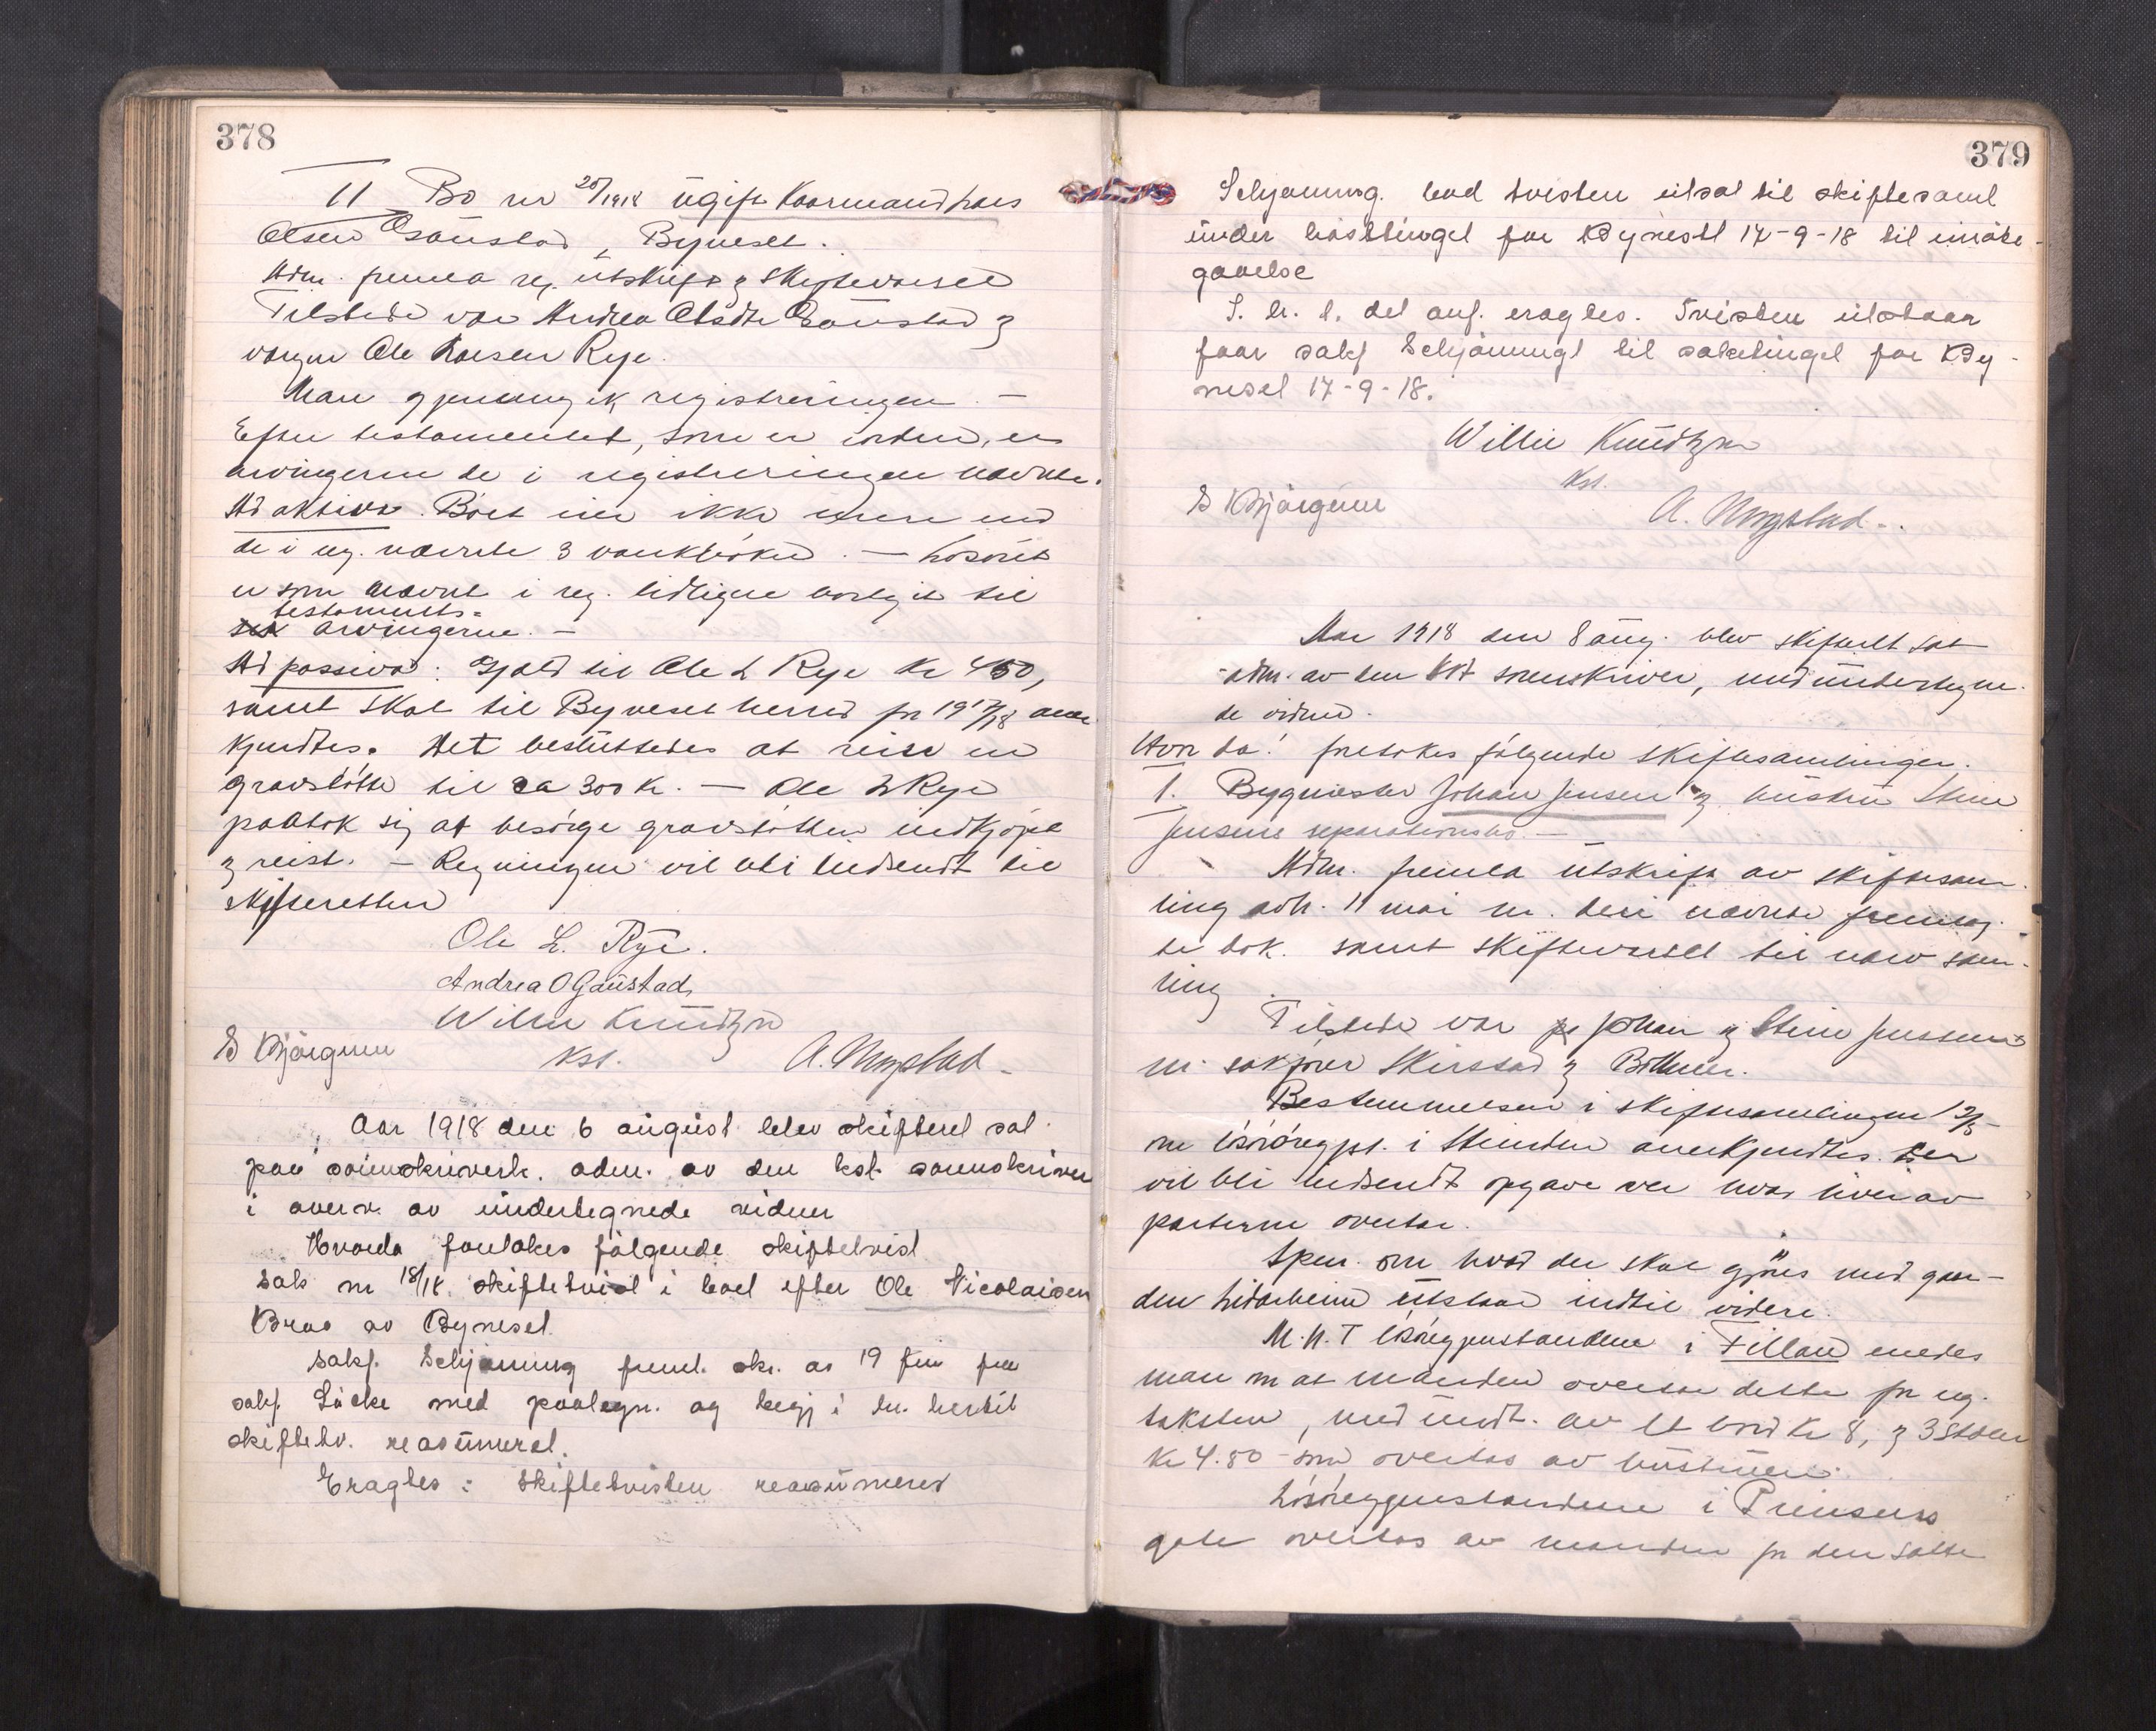 378
II Bo nr 20/1918 ugift Kaarmand Lars
Olsen Gaustad, Byneset.
Adm. fremla reg. utskrift & Skiftevarsel
Tilstede var Andrea Olsdtr Gaustad &
vergen Ole Larsen Rye.
Man gjennemgik registreringen. –
Efter testamentet, som er iorden, er
arvingerne de i registreringen nævnte.
Ad aktiva. Boet eier ikke mere end
de i reg. nævnte 3 bankbøker. – Løsøret
er som nævnt i reg. tidligere bortgit til
testaments-
arvingerne. –
Ad passiva: Gjæld til Ole L Rye Kr 450,
samt Skat til Byneset herred for 1917/18 aner
kjendtes. Det besluttedes at reise en
gravstøtte til ca 300 kr. – Ole L Rye
paatok sig at besørge gravstøtten indkjøpt
& reist. – Regningen vil bli indsendt til
skifteretten
Ole L. Rye.
Andrea O Gaustad,
Willie Knudtzon
kst.
E Bjørgum
A. Ringstad
Aar 1918 den 6 august blev skifteret sat
paa sorenskriverk. adm. av den kst. sorenskriver
i overv. av undertegnede vidner
Hvorda foretokes følgende skiftetvist
Sak nr 18/18. skiftetvist i boet efter Ole Nicolaisen
Braa av Byneset.
Sakf. Schjønning freml. skr. av 19 juni fra
sakf. Lücke med paategn. og begj i hh. hertil
skiftetv. reasumeret.
Eragtes: Skiftetvisten reasumeres
379
Schjønning. bad tvisten utsat til skiftesaml
under høsttinget for Byneset 17-9-18 til imøte-
gaaelse
S. bl. d. det anf. eragtes. Tvisten utstaar
paa sakf Schjønnings til saketinget for By-
neset 17-9-18.
Willie Knudtzon
kst.
E Bjørgum
A. Ringstad
Aar 1918 den 8 aug. blev skifteret sat
adm. av den kst sorenskriver, med undertegne-
de vidner.
Hvor da: foretokes følgende skiftesamlinger.
1. Bygmester Johan Jensen & hustru Stine
Jensens separationsbo. –
Adm. fremla utskrift av skiftesam-
ling avh. 11 mai m. deri nævnte fremlag-
te dok. samt skiftevarsel til nærv sam-
ling.
Tilstede var Johan & Stine Jensen
m. sakfører Skirstad & Bøthner.
Bestemmelsen i skiftesamlingen 11/5
om løsøregjst. i Strinden anerkjendtes. Der
vil bli indsendt opgave over hvad hver av
parterne overtar.
Spm. om hvad der skal gjøres med gaar-
den Lidarheim utstaar indtil videre.
M.H.T løsøregjenstandene i Tillan enedes
man om at manden overtar dette for reg.
taksten, med undt. av et bord kr 8, & 3 Stoler
kr 4.80 som overtas av hustruen.
Løsøregjenstandene i Prinsens
gate overtas av manden for den satte